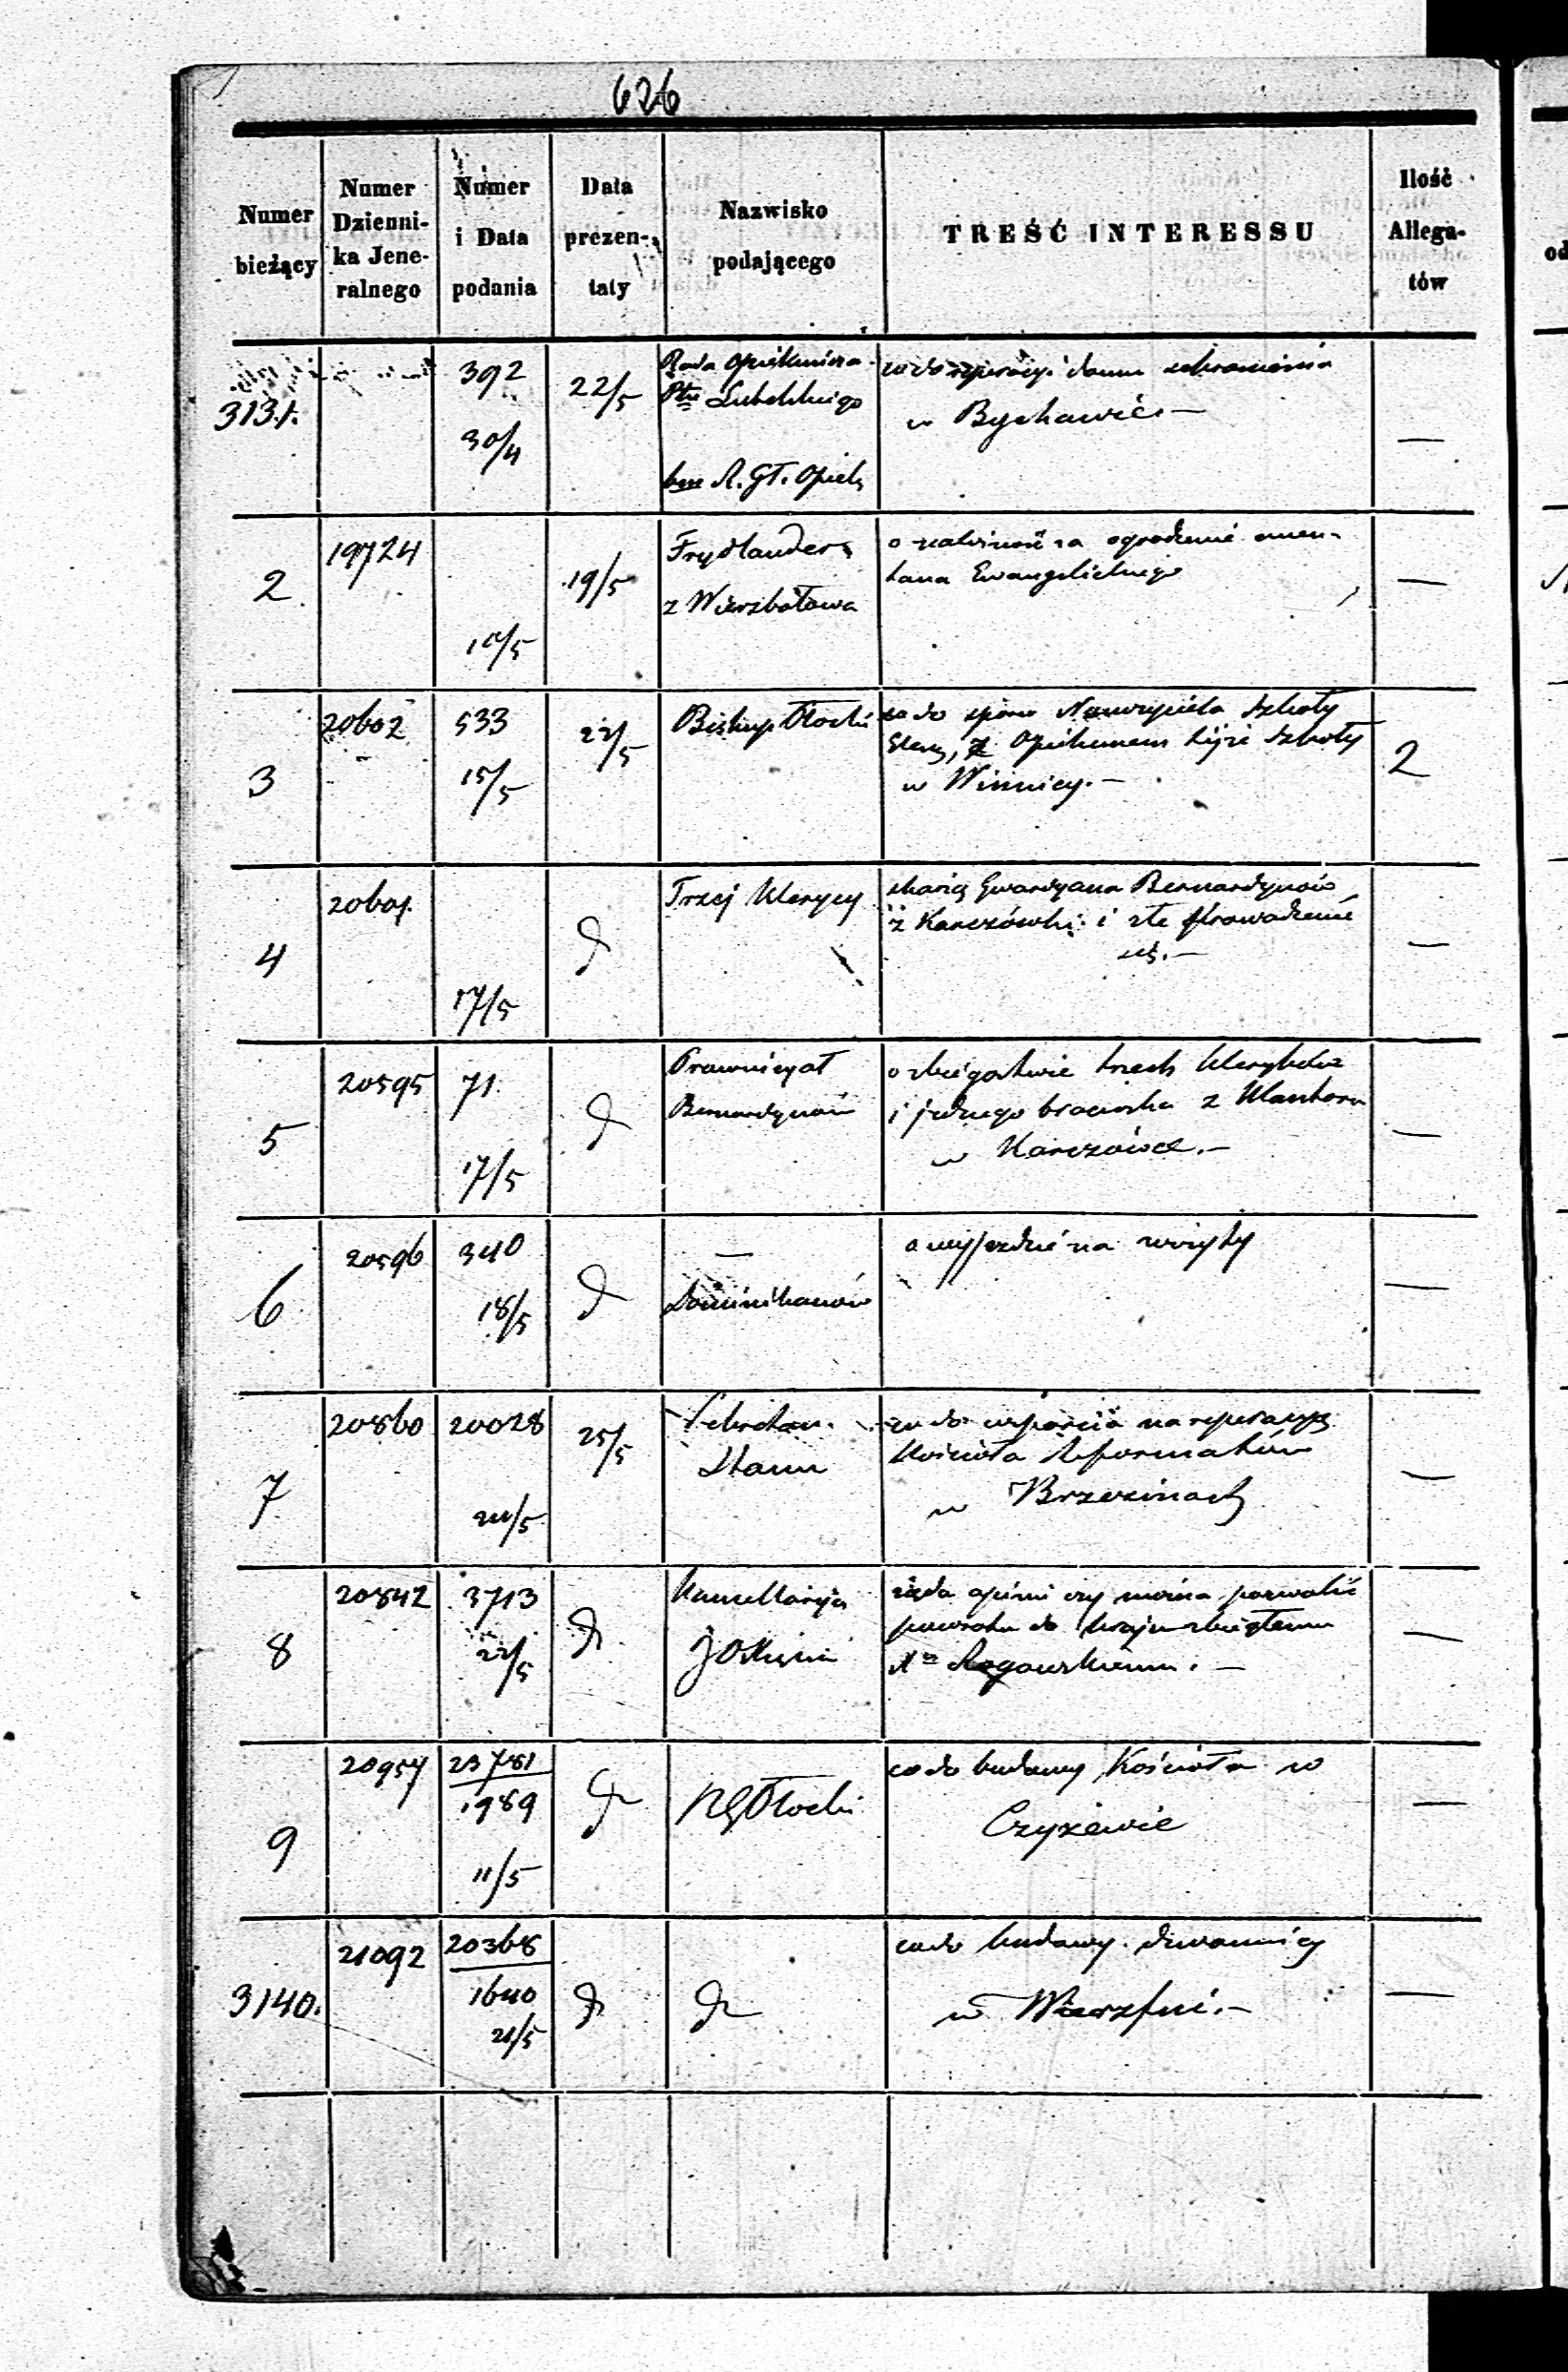 626
Numer bieżący
Numer Dzienni-
ka Jene-
ralnego
Numer i Data podania
Data prezen-
taty
Nazwisko podającego
TREŚĆ INTERESSU
Ilość Allega-
tów
3131.
392
30/4
22/5
Rada Opiekuńcza
Ptu Lubelskiego
R. Gł. Opiek
co do reperacyi domu schronienia
w Bychawie. —
—
2
19724
19/5
Frydlander
z Wierzbołowa
o należność za ogrodzenie cmen-
tarza Ewangelickiego
—
3
20602
533
15/5
22/5
Biskup Płocki
co do sporu Nauczyciela Szkoły
Elem, z Opiekunem tejże Szkoły
w Winnicy. —
2
4
20601.
17/5
Trzej Klerycy
skarżą Gwardyana Bernardynów
z Karczówki i złe prowadzenie
się. —
—
5
20595
71
17/5
Prowincyał
Bernardynów
o zbiegostwie trzech Kleryków
i jednego braciszka z Klasztoru
w Karczówce. —
—
6
20596
340
18/5
—
Dominikanów
o wyjeździe na wizyty
—
7
20860
20028
25/5
Sekretarz
Stanu
co do wsparcia na reperacyą
Kościoła Reformatów
w Brzezinach
—
8
20842
3713
22/5
Kancellaryja
żąda opinii czy można pozwolić
powrotu do kraju zbiegłemu
Xu Rogowskiemu. —
—
9
20957
23781
1989
11/5
RG Płocki
co do budowy Kościoła w
Czyżewie
—
3140.
21092
20368
1640
21/5
co do budowy dzwonnicy
w
—